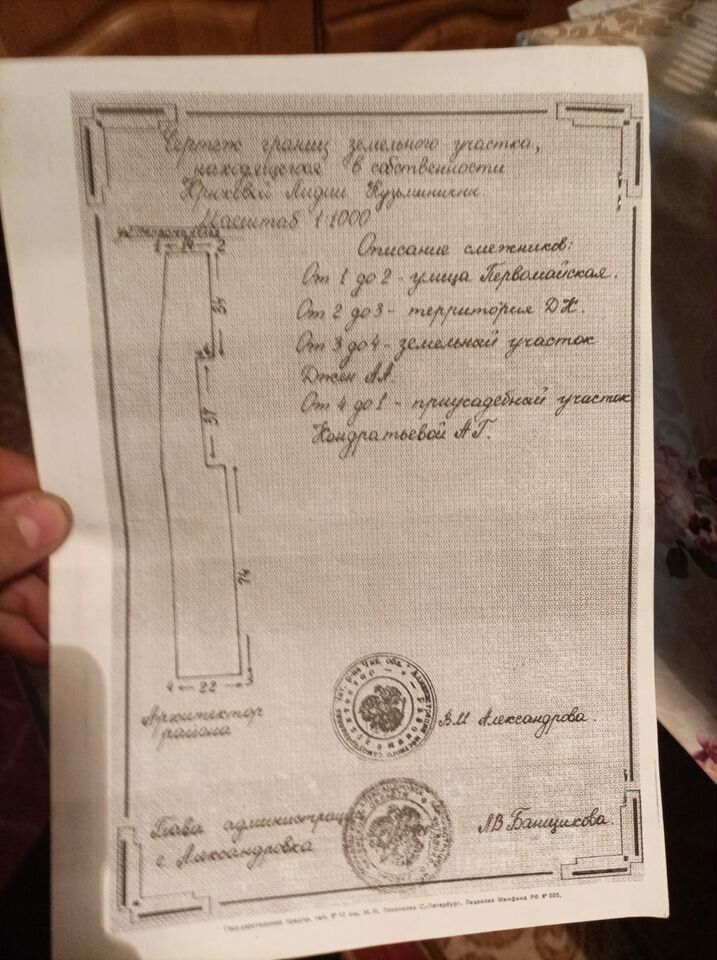 Чертеж границ земельного участка,
находещегося в собственности
Крюковой Лидии Кузьминичны.
Масштаб 1:1000
ул.
1 14 2
Описание смежников:
От 1 до 2 - улица Первомайская.
34
От 2 до 3 - территория ДК.
От 3 до 4 - земельный участок
Джен А.А.
37
От 4 до 1 - приусадебный участок
Кондратьевой А.Г.
74
4 22 3
Архитектор
района
В.М Александрова.
Глава администрац
с. Александровка
Л.В Банщикова.
С.-Петербург. Лицензия Минфина РФ №